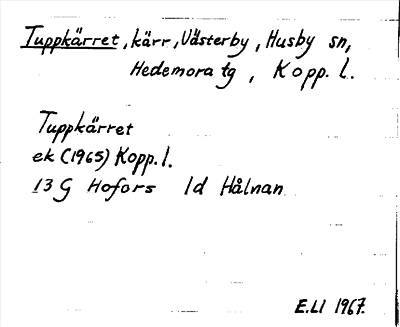 Tuppkärret, kärr, Västerby, Husby sn,
Hedemora tg, Kopp. l.
Tuppkärret
ek (1965) Kopp. l.
13 G Hofors 1d Hålnan
E.LI 1967.